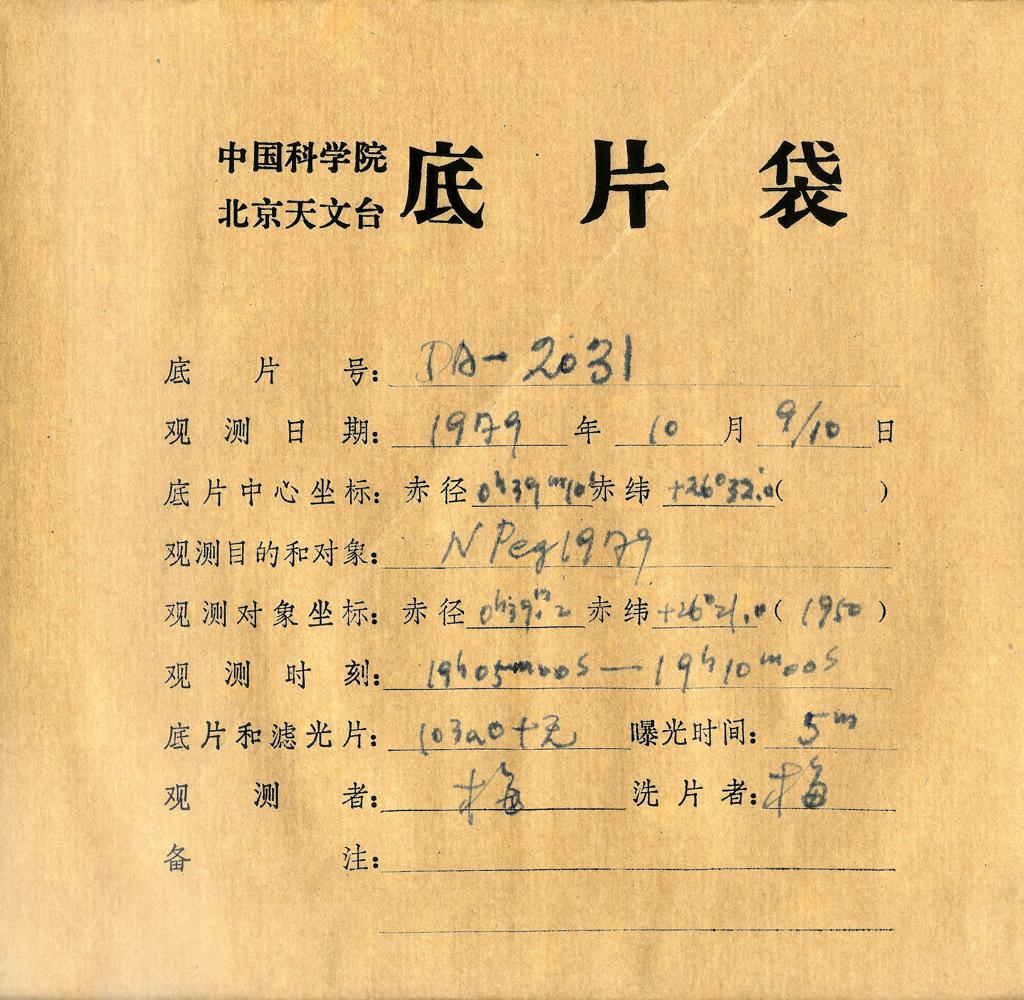 中国科学院
北京天文台 底片袋
底片号: DA-2031
观测日期: 1979年10月9/10日
底片中心坐标: 赤径 0h39m10s 赤纬 +26°32.0 ( )
观测目的和对象: N Peg 1979
观测对象坐标: 赤径 0h39.m2 赤纬 +26°21.0 (1950)
观测时刻: 19h05m00s—19h10m00s
底片和滤光片: 103aO+无 曝光时间: 5m
观测者: 梅 洗片者: 梅
备注: